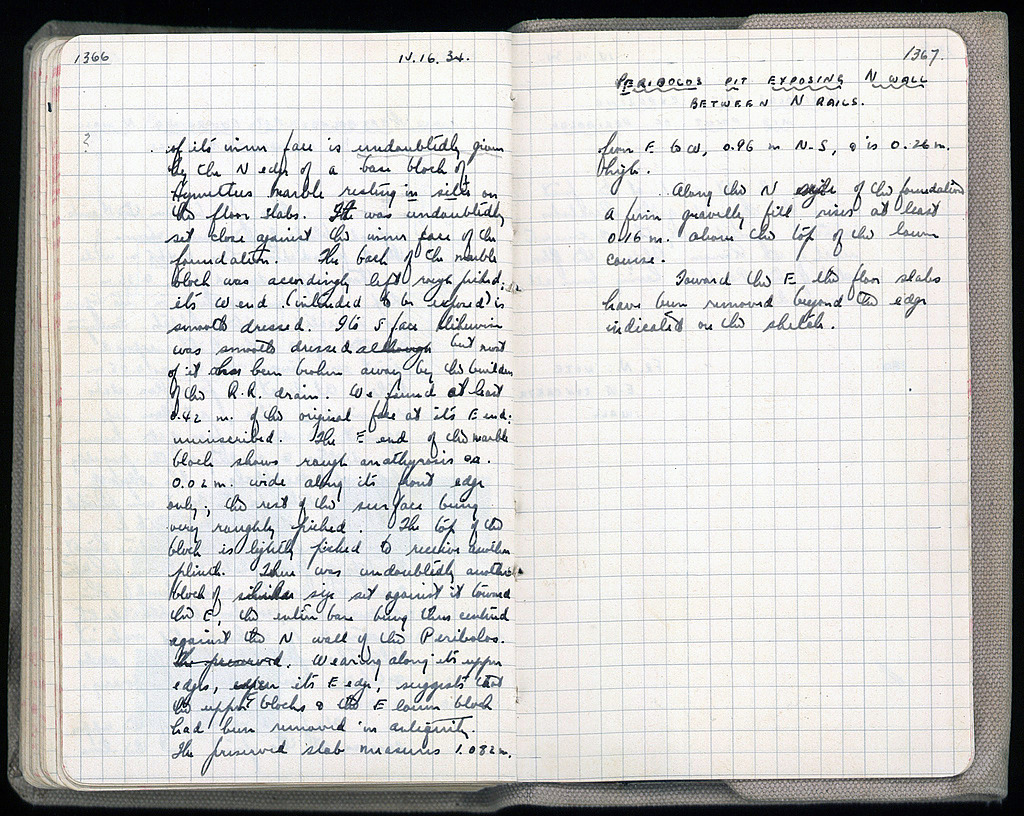 1366
IV.16.34.
?
of it's inner face is undoubtedly given
by the N edge of a base block of
Hymettus marble resting in situ on
the floor slabs. It was undoubtedly
set close against the inner face of the
foundation. The back of the marble
block was accordingly left rough picked.
it's W end (intended to be exposed) is
smooth dressed. Its S face likewise
was smooth dressed although but most
of it has been broken away by the builders
of the R.R. drain. We found at least
0.42 m. of the original face at it's E end:
uninscribed. The E end of the marble
block shows rough anathyrosis ca.
0.02 m. wide along its front edge
only; the rest of the surface being
very roughly picked. The top of the
block is lightly picked to receive another
plinth. There was undoubtedly another
block of similar size set against it toward
the E, the entire base being thus centred
against the N wall of the Peribolos.
The preserved. Wearing along its upper
edges, its E edge, suggests that
the upper blocks & the E lower block
had been removed in antiquity.
The preserved slab measures 1.082 m.
1367.
PERIBOLOS PIT EXPOSING N WALL
BETWEEN N RAILS.
from E to W, 0.96 m N-S, & is 0.26 m.
high.
Along the N of the foundation
a firm gravelly fill rises at least
0.16 m. above the top of the lower
course.
Toward the E the floor slabs
have been removed beyond the edge
indicated on the sketch.